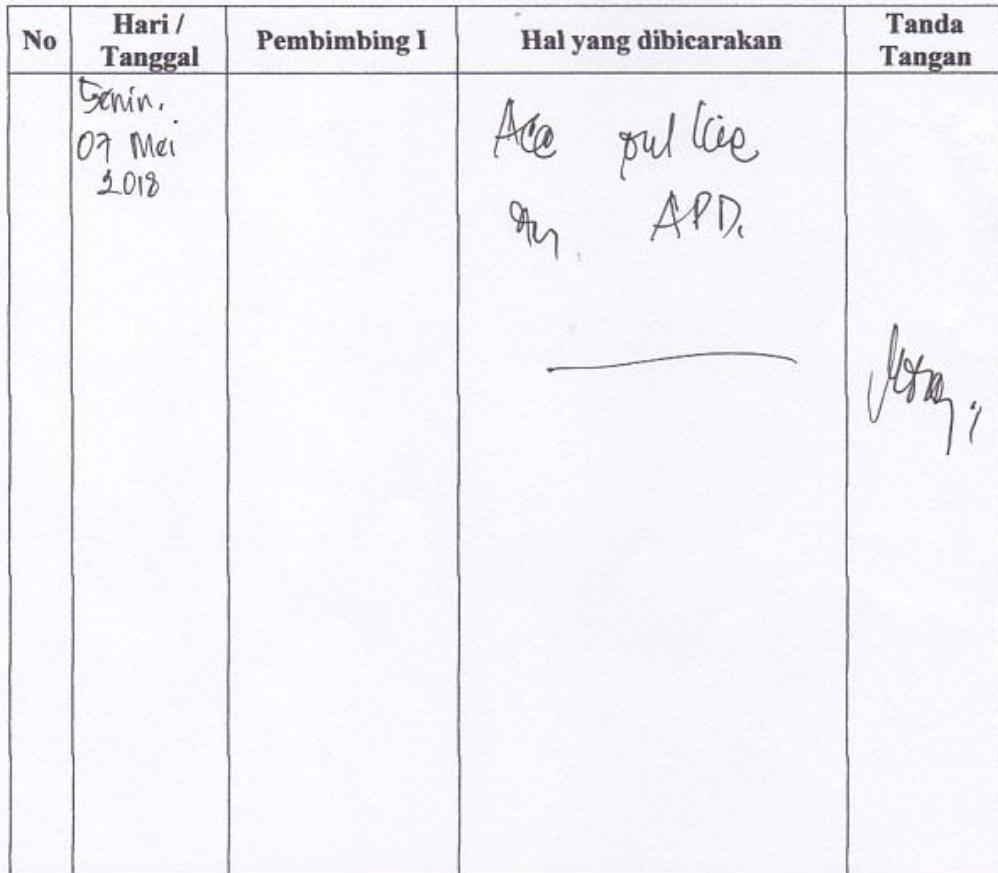 No Hari / Tanggal Pembimbing I Hal yang dibicarakan Tanda Tangan
Senin.
07 Mei
2018
Acc
APD.